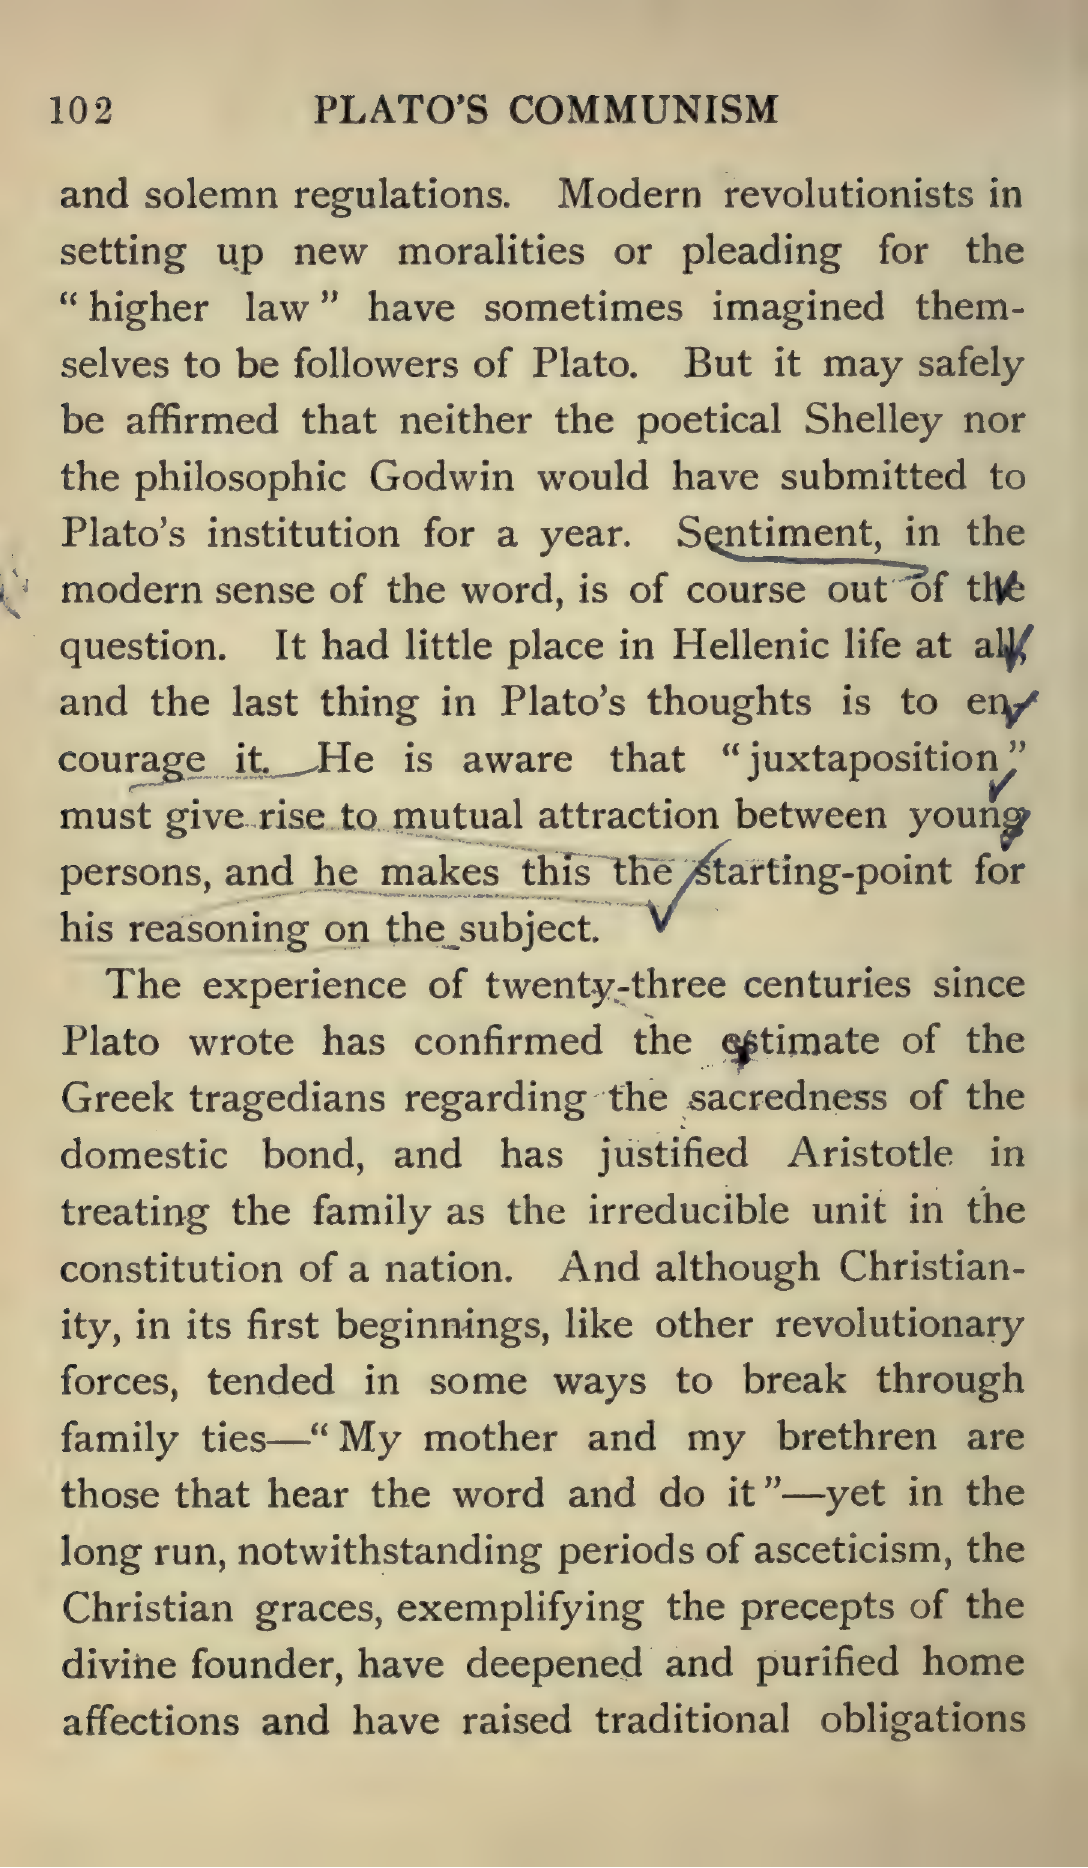 102 PLATO'S COMMUNISM
and solemn regulations. Modern revolutionists in
setting up new moralities or pleading for the
“higher law” have sometimes imagined them-
selves to be followers of Plato. But it may safely
be affirmed that neither the poetical Shelley nor
the philosophic Godwin would have submitted to
Plato's institution for a year. Sentiment, in the
modern sense of the word, is of course out of the
question. It had little place in Hellenic life at all,
and the last thing in Plato's thoughts is to en-
courage it. He is aware that “juxtaposition”
must give rise to mutual attraction between young
persons, and he makes this the starting-point for
his reasoning on the subject.
The experience of twenty-three centuries since
Plato wrote has confirmed the estimate of the
Greek tragedians regarding the sacredness of the
domestic bond, and has justified Aristotle in
treating the family as the irreducible unit in the
constitution of a nation. And although Christian-
ity, in its first beginnings, like other revolutionary
forces, tended in some ways to break through
family ties—“My mother and my brethren are
those that hear the word and do it”—yet in the
long run, notwithstanding periods of asceticism, the
Christian graces, exemplifying the precepts of the
divine founder, have deepened and purified home
affections and have raised traditional obligations